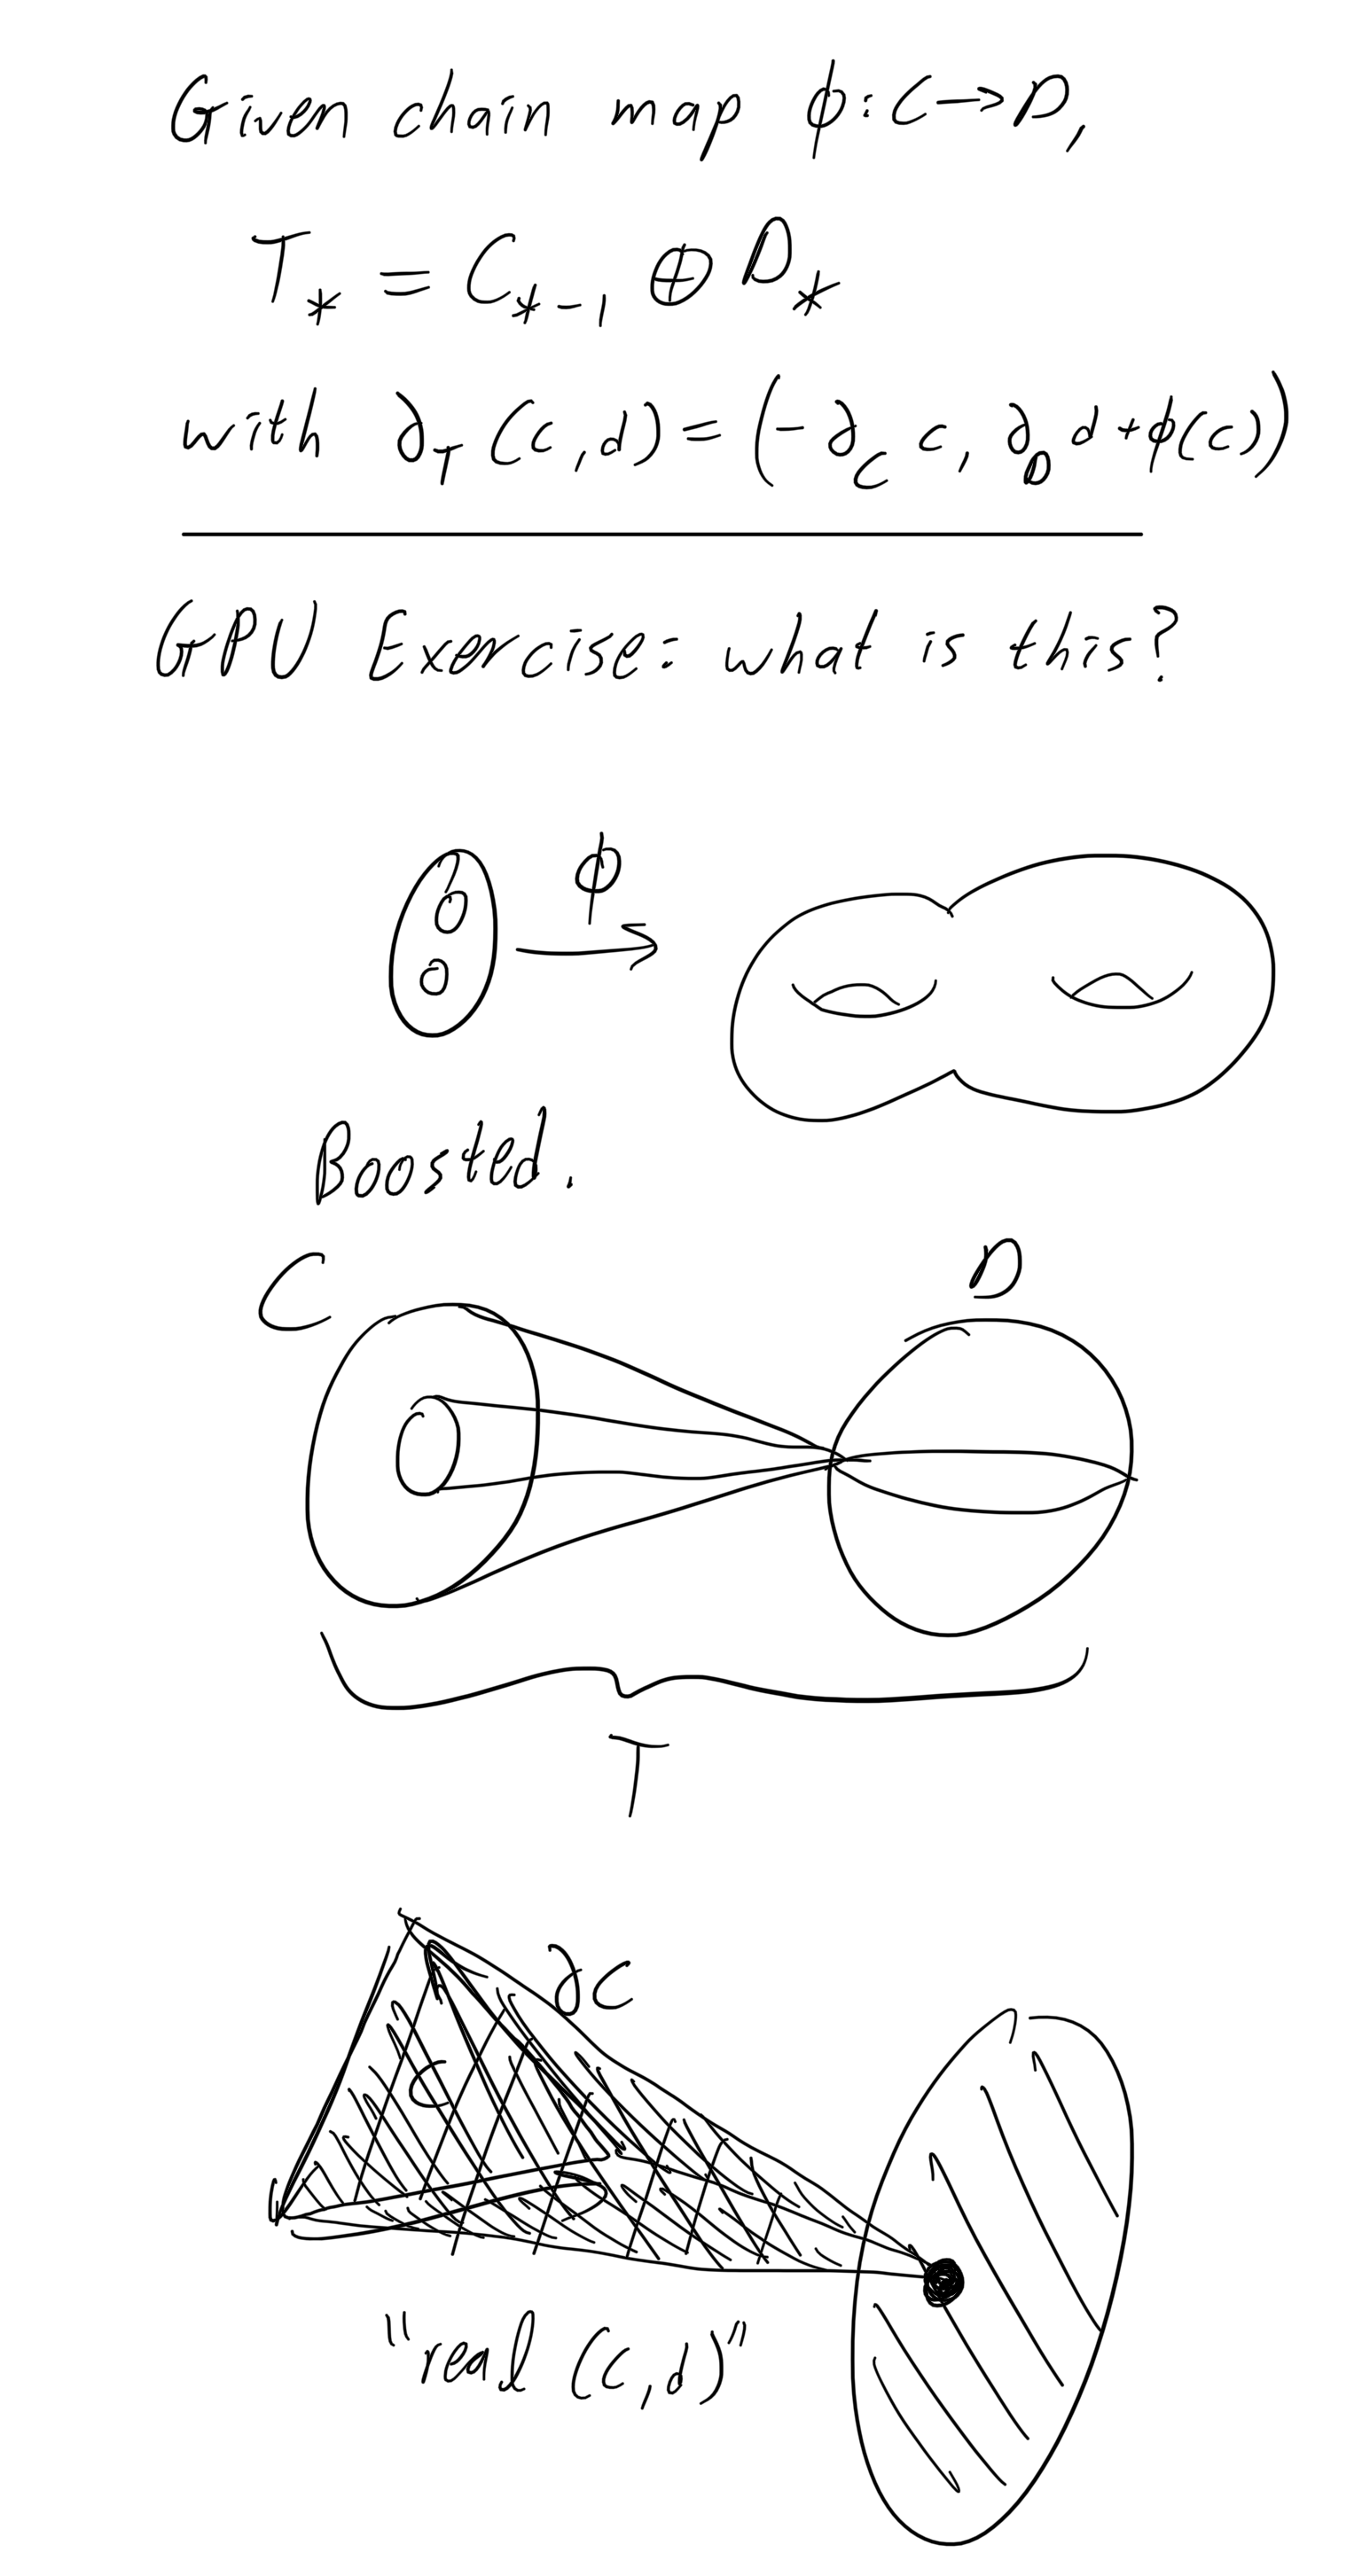 Given chain map ϕ: C→D,
T_* = C_{*-1} ⊕ D_*
with ∂_T (c,d) = (-∂_C c, ∂_D d + ϕ(c))
GPU Exercise: what is this?
ϕ
Boosted.
C D
T
∂c
C
"real (c,d)"